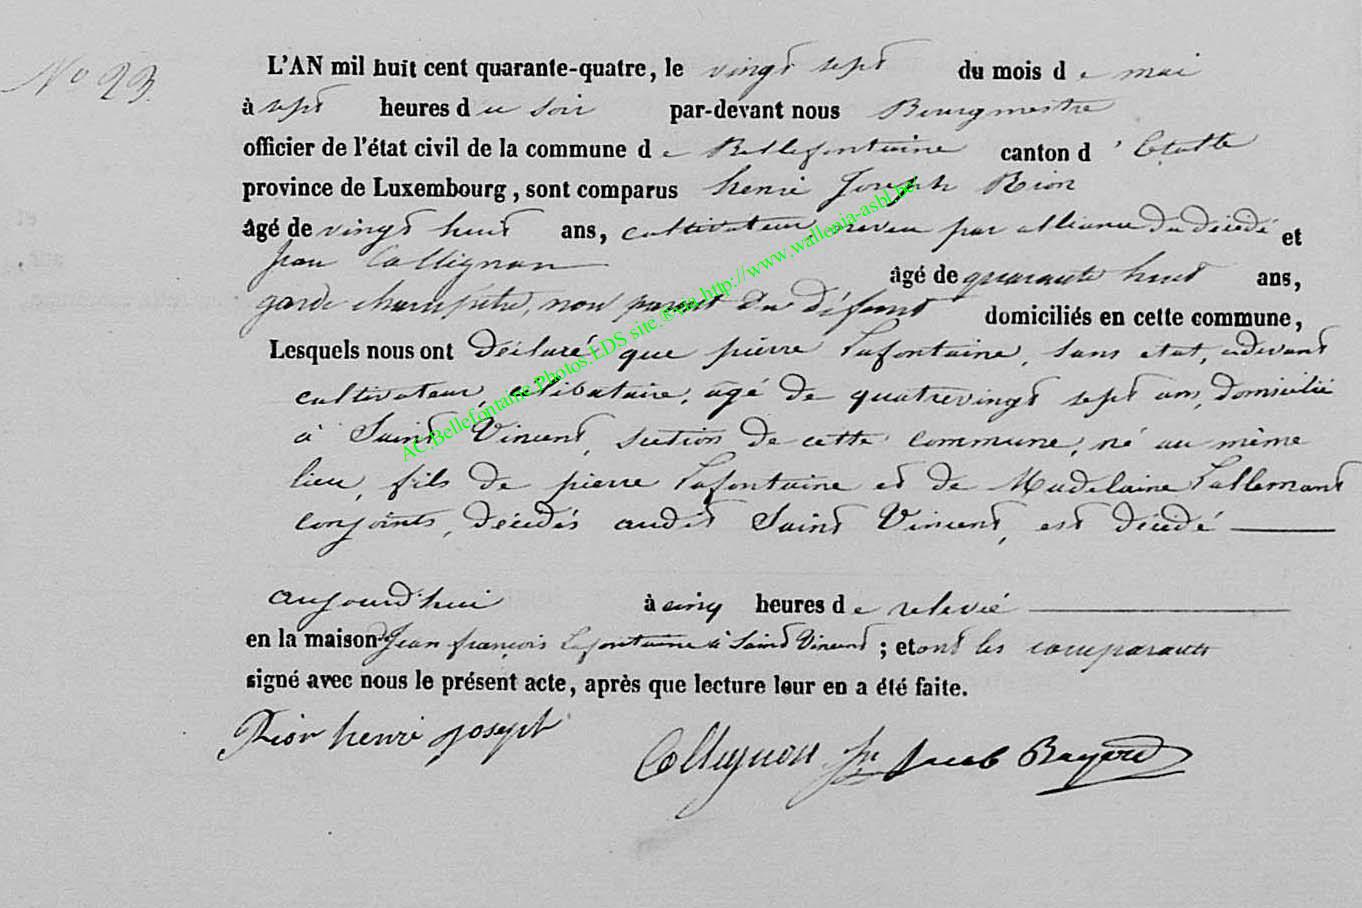 No 23.
L'AN mil huit cent quarante-quatre, le vingt sept du mois de mai
à sept heures du soir par-devant nous Bourgmestre
officier de l'état civil de la commune de Bellefontaine canton d'Etalle
province de Luxembourg, sont comparus henri Joseph Rion
âgé de vingt huit ans, cultivateur, neveu par alliance du décédé et
Jean Collignon âgé de quarante huit ans,
garde champêtre, non parent du défunt domiciliés en cette commune,
Lesquels nous ont déclaré que pierre Lafontaine, sans etat, advant
cultivateur, célibataire, agé de quatrevingt sept ans, domicilié
à Saint Vincent, section de cette commune, né au même
lieu, fils de pierre Lafontaine et de Madelaine Lallemant
conjoints, décédés audit Saint Vincent, est décédé
aujourd'hui à cinq heures de relevée
en la maison de Jean françois Lafontaine à Saint Vincent ; et ont les comparants
signé avec nous le présent acte, après que lecture leur en a été faite.
Rion henri joseph
Collignon Jn Jacob Bayard
AC.Bellefontaine.Photos.EDS site.®via http://www.wallonia-asbl.be/